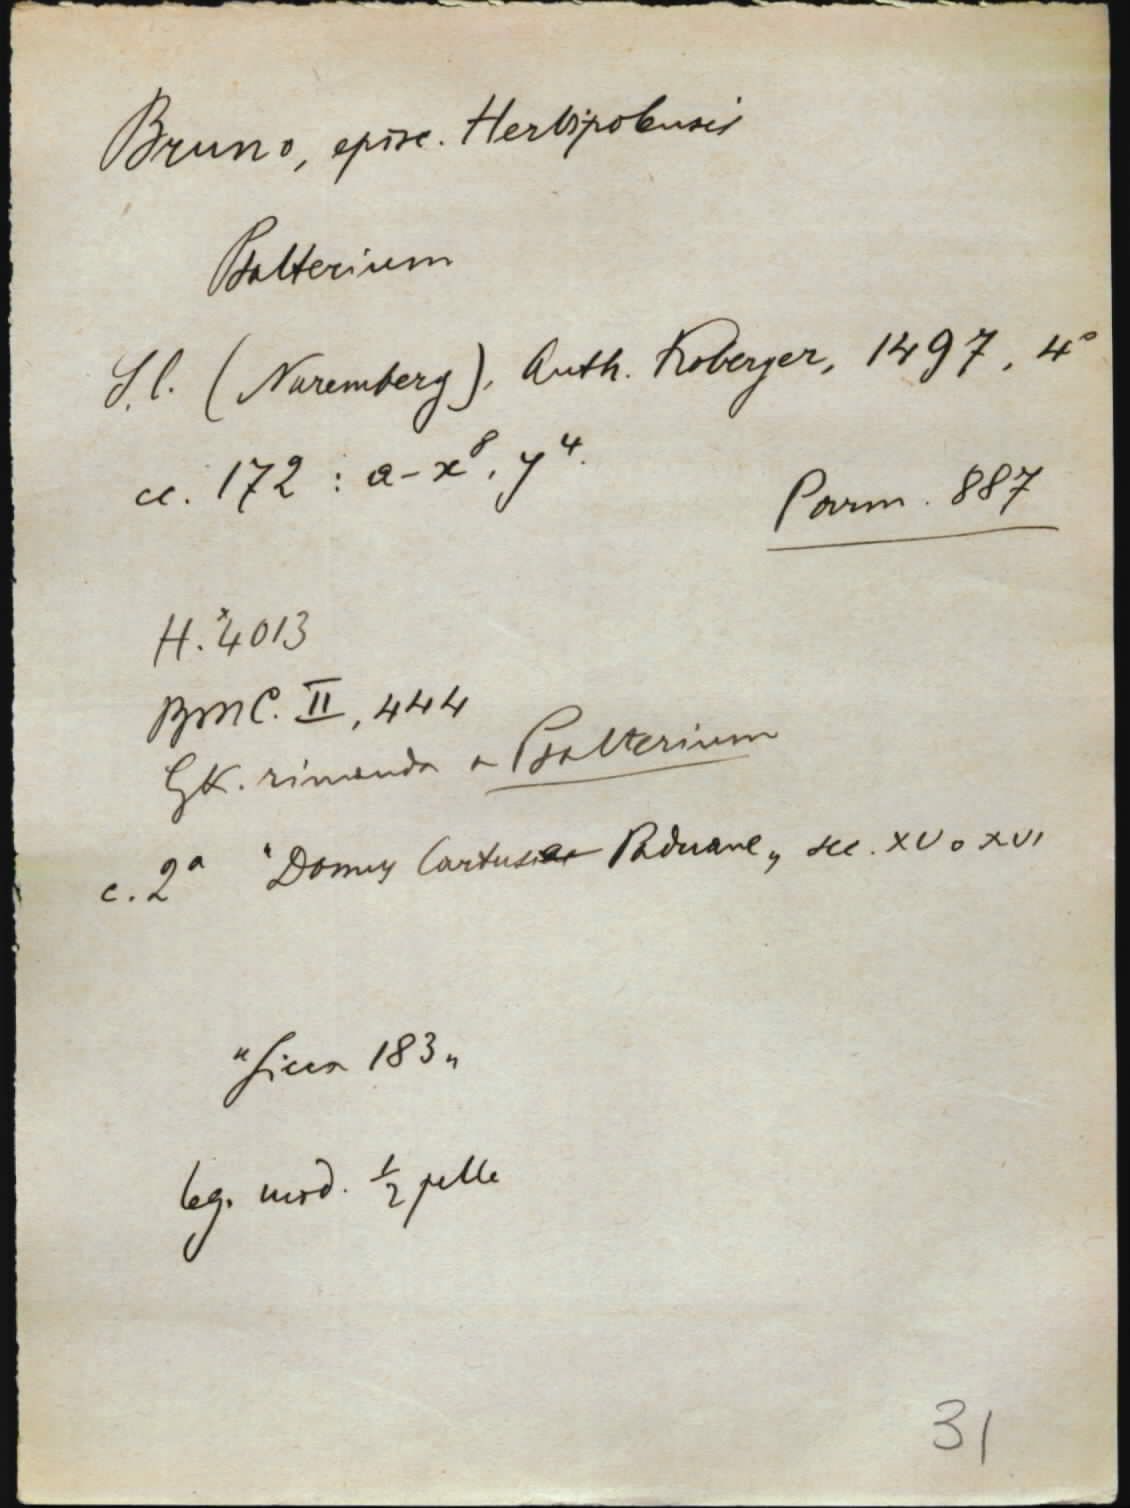 Bruno, episc. Herbipolensis
Psalterium
S. l. (Nuremberg), Anth. Koberger, 1497, 4°
cc. 172 : a-x⁸, y⁴.
Parm. 887
H.*4013
BMC. II, 444
GK. rimanda a Psalterium
c. 2ª "Domus Cartusiae Paduane„ sec. XV o XVI
"Sicca 183„
leg. mod. ½ pelle
31